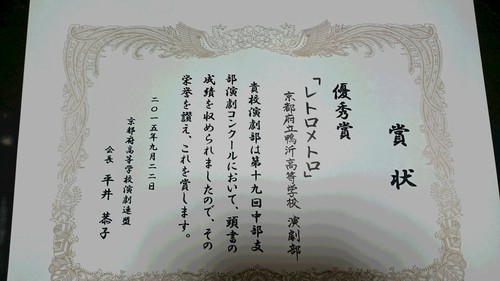 賞状
優秀賞
「レトロメトロ」
京都府立鴨沂高等学校 演劇部
貴校演劇部は第十九回中部支
部演劇コンクールにおいて、頭書の
成績を収められましたので、その
栄誉を讃え、これを賞します。
二〇一五年九月二二日
京都府高等学校演劇連盟
会長 平井 恭子